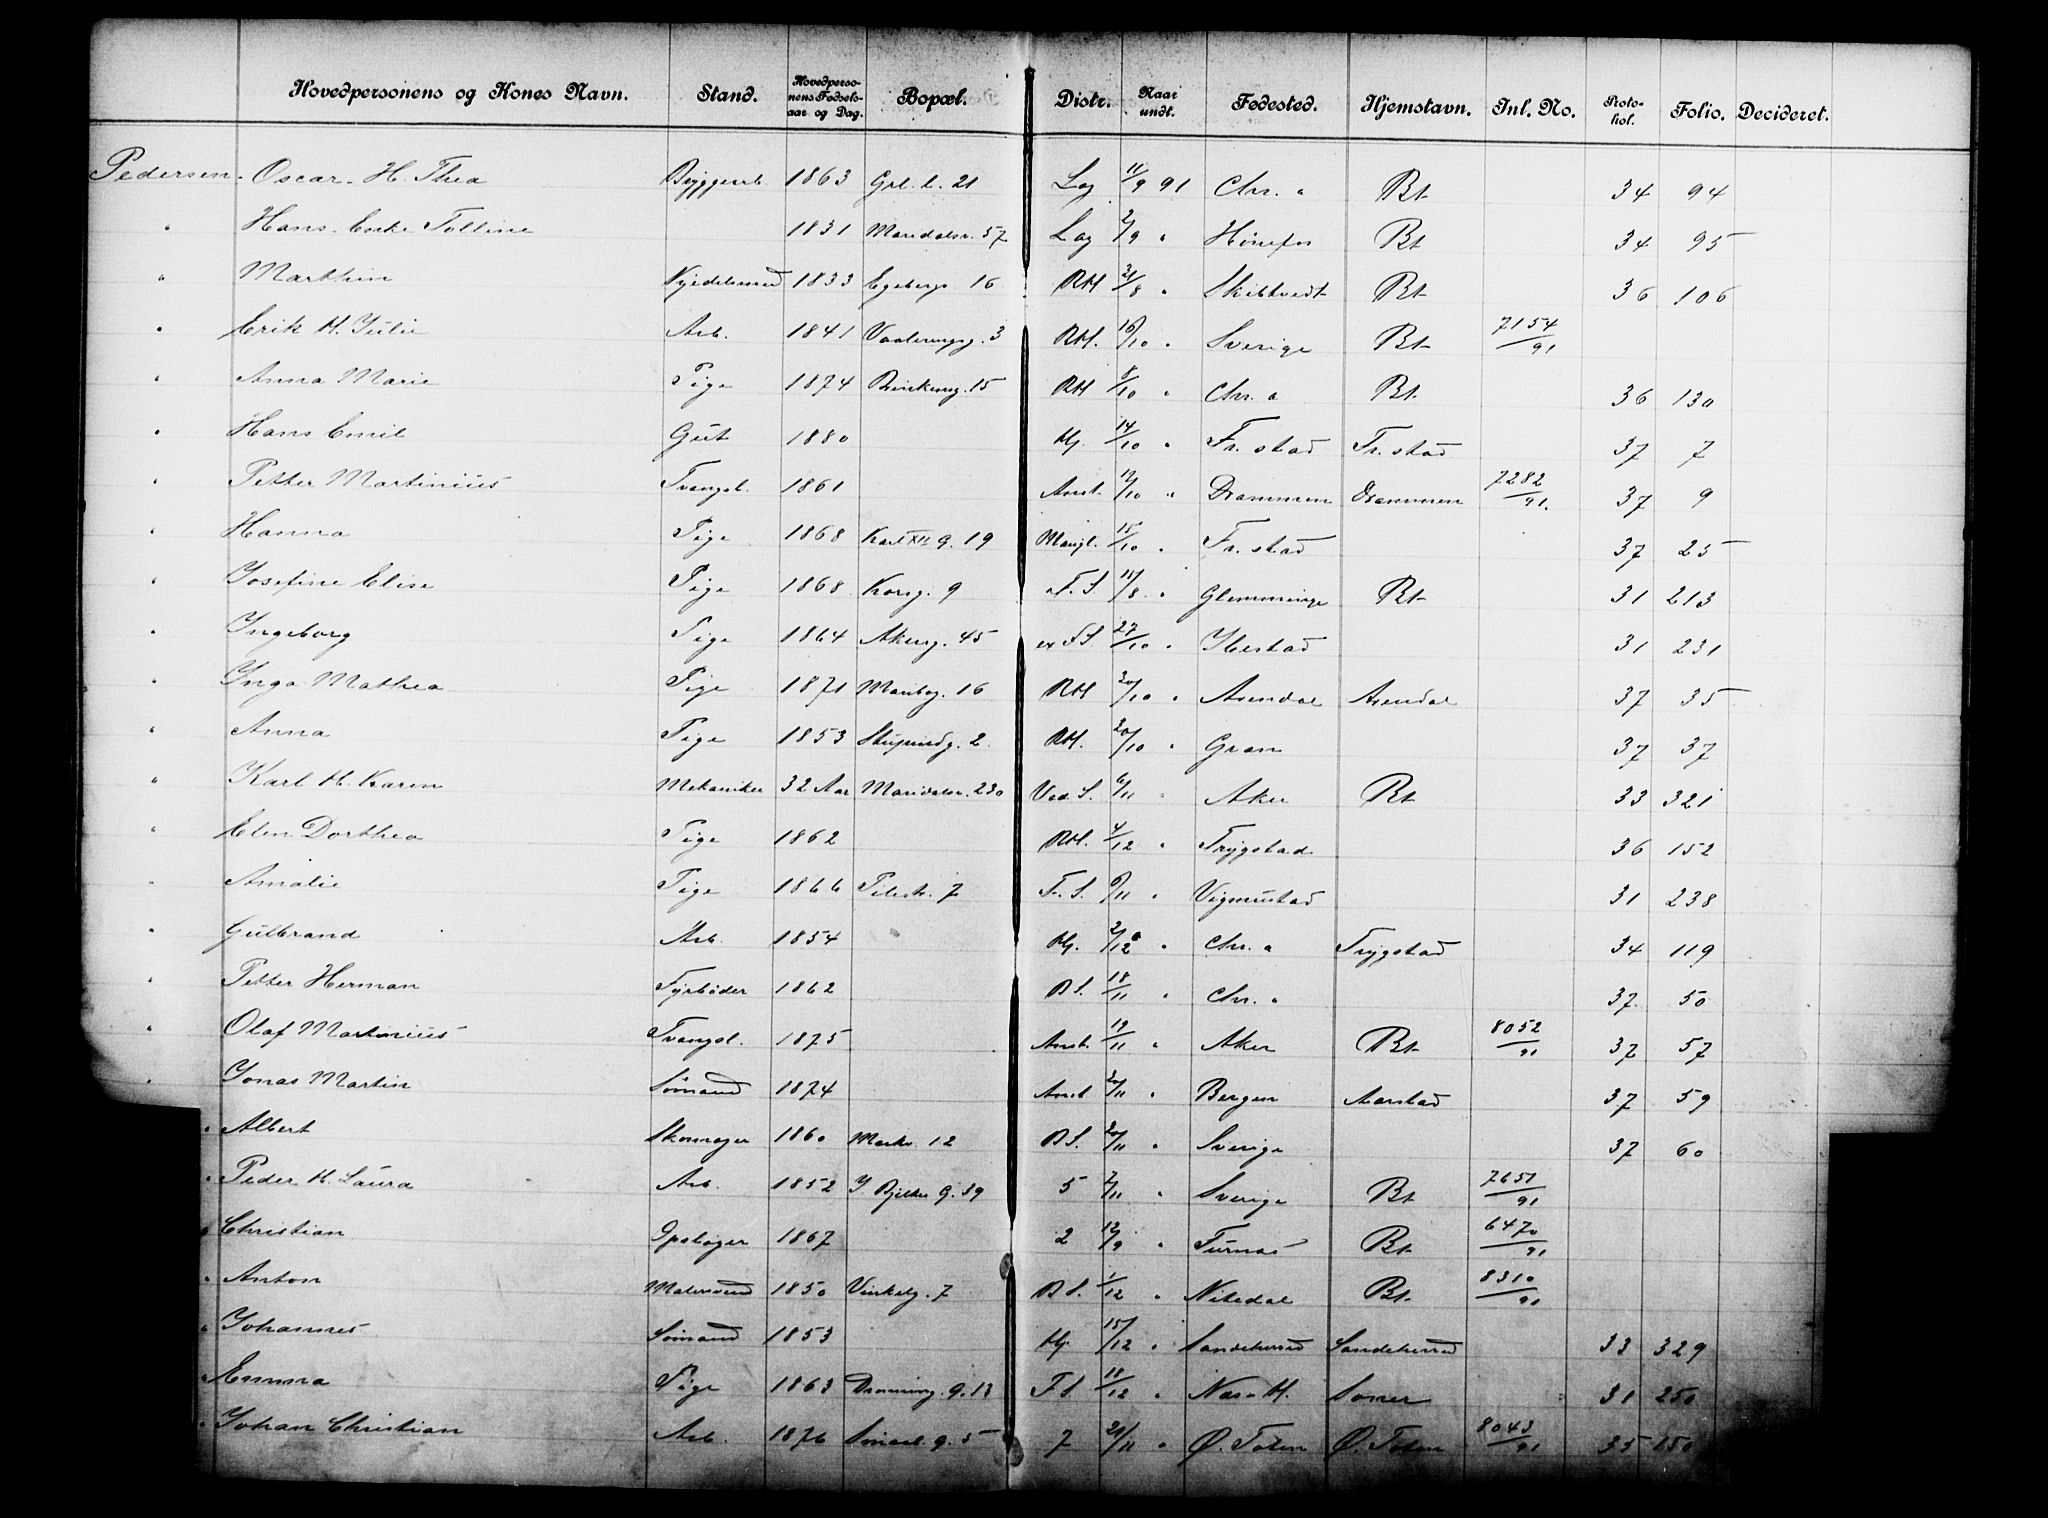 Hovedpersonens og Kones Navn. Stand. Hovedpersonens Fødselsaar og Dag. Bopæl. Distr. Naar undt. Fødested. Hjemstavn. Inl. No. Protokol. Folio. Decideret.
Pedersen. Oscar H. Thea Byggearb. 1863 Grl. l. 21 Lag 11/9 91 Chr. a Bt 34 94
" Hans Enke Tolline 1831 Maridalsv. 57 Lag 2/9 " Hønefos Bt 34 95
" Marthin 1833 Egebergs 16 RH 31/8 " Skibtvedt Bt 36 106
" Erik H. Julie Arb. 1841 Vaalerengg. 3 RH. 16/10 " Sverige Bt 7154/91
" Anna Marie Pige 1874 15 RH 8/10 " Chr. a Bt 36 130
" Hans Emil Gut 1880 Hj. 14/10 " Fr. stad Fr. stad 37 7
" Petter Martinius Tvangsl. 1861 Anst. 12/10 " Drammen Drammen 7282/91. 37 9
" Hanna Pige 1868 Karl XII g. 19 Mangl. 15/10 " Fr. stad 37 25
" Josefine Elise Pige 1868 Korsg. 9 F. S. 11/8 " Glemminge Bt 31 213
" Ingeborg Pige 1864 Akersg. 45 ex F S. 27/10 " Ibestad 31 231
" Inga Mathea Pige 1871 Maribog. 16 RH 20/10 " Arendal Arendal 37 35
" Anna Pige 1853 Stupinsg. 2. RH. 20/10 " Gran 37 37
" Karl H. Karen Mekaniker 32 Aar Maridalsv. 230 Ved S. 6/11 " Aker Bt 33 321
" Elen Dorthea Pige 1862 RH. 4/12 " Trygstad 36 152
" Amalie Pige 1866 Pilestr. 7 F. S. 6/11 " Vigmostad 31 238
" Gulbrand Arb. 1854 Hj. 2/12 " Chr. a Trygstad 34 119
" Petter Herman Fyrbøder 1862 B S. 18/11 " Chr. a 37. 50
" Olaf Martinius Tvangsl. 1875 Anst. 19/11 " Aker Bt 8052/91 37 57
" Jonas Martin Sømand 1874 Anst 20/11 " Bergen Aarstad 37 59
" Albert Skomager 1860 Markv. 12 B S. 20/11 " Sverige 37 60
" Peder H. Laura Arb. 1852 J Bjelkes g. 39 5 7/11 " Sverige Bt 7651/91
" Christian Opslager 1867 2 12/9 " Furnæs Bt 6470/91
" Anton Malersvend 1850 Vinkelg. 7 B S. 1/12 " Nitedal Bt 8310/91
" Johannes Sømand 1853 Hj. 15/12 " Sandeherred Sandeherred 33 329
" Emma Pige 1863 Dronning. g. 13 F S. 11/12 " Næs H. Soner 31 250
" Johan Christian Arb. 1876 g. 5 7 21/11 " Ø. Toten Ø. Toten 8043/91 35 150